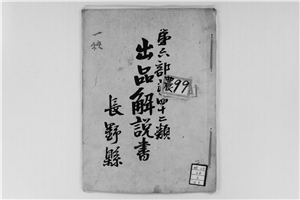 第六部第四十二類
農99
出品解説書
長野縣